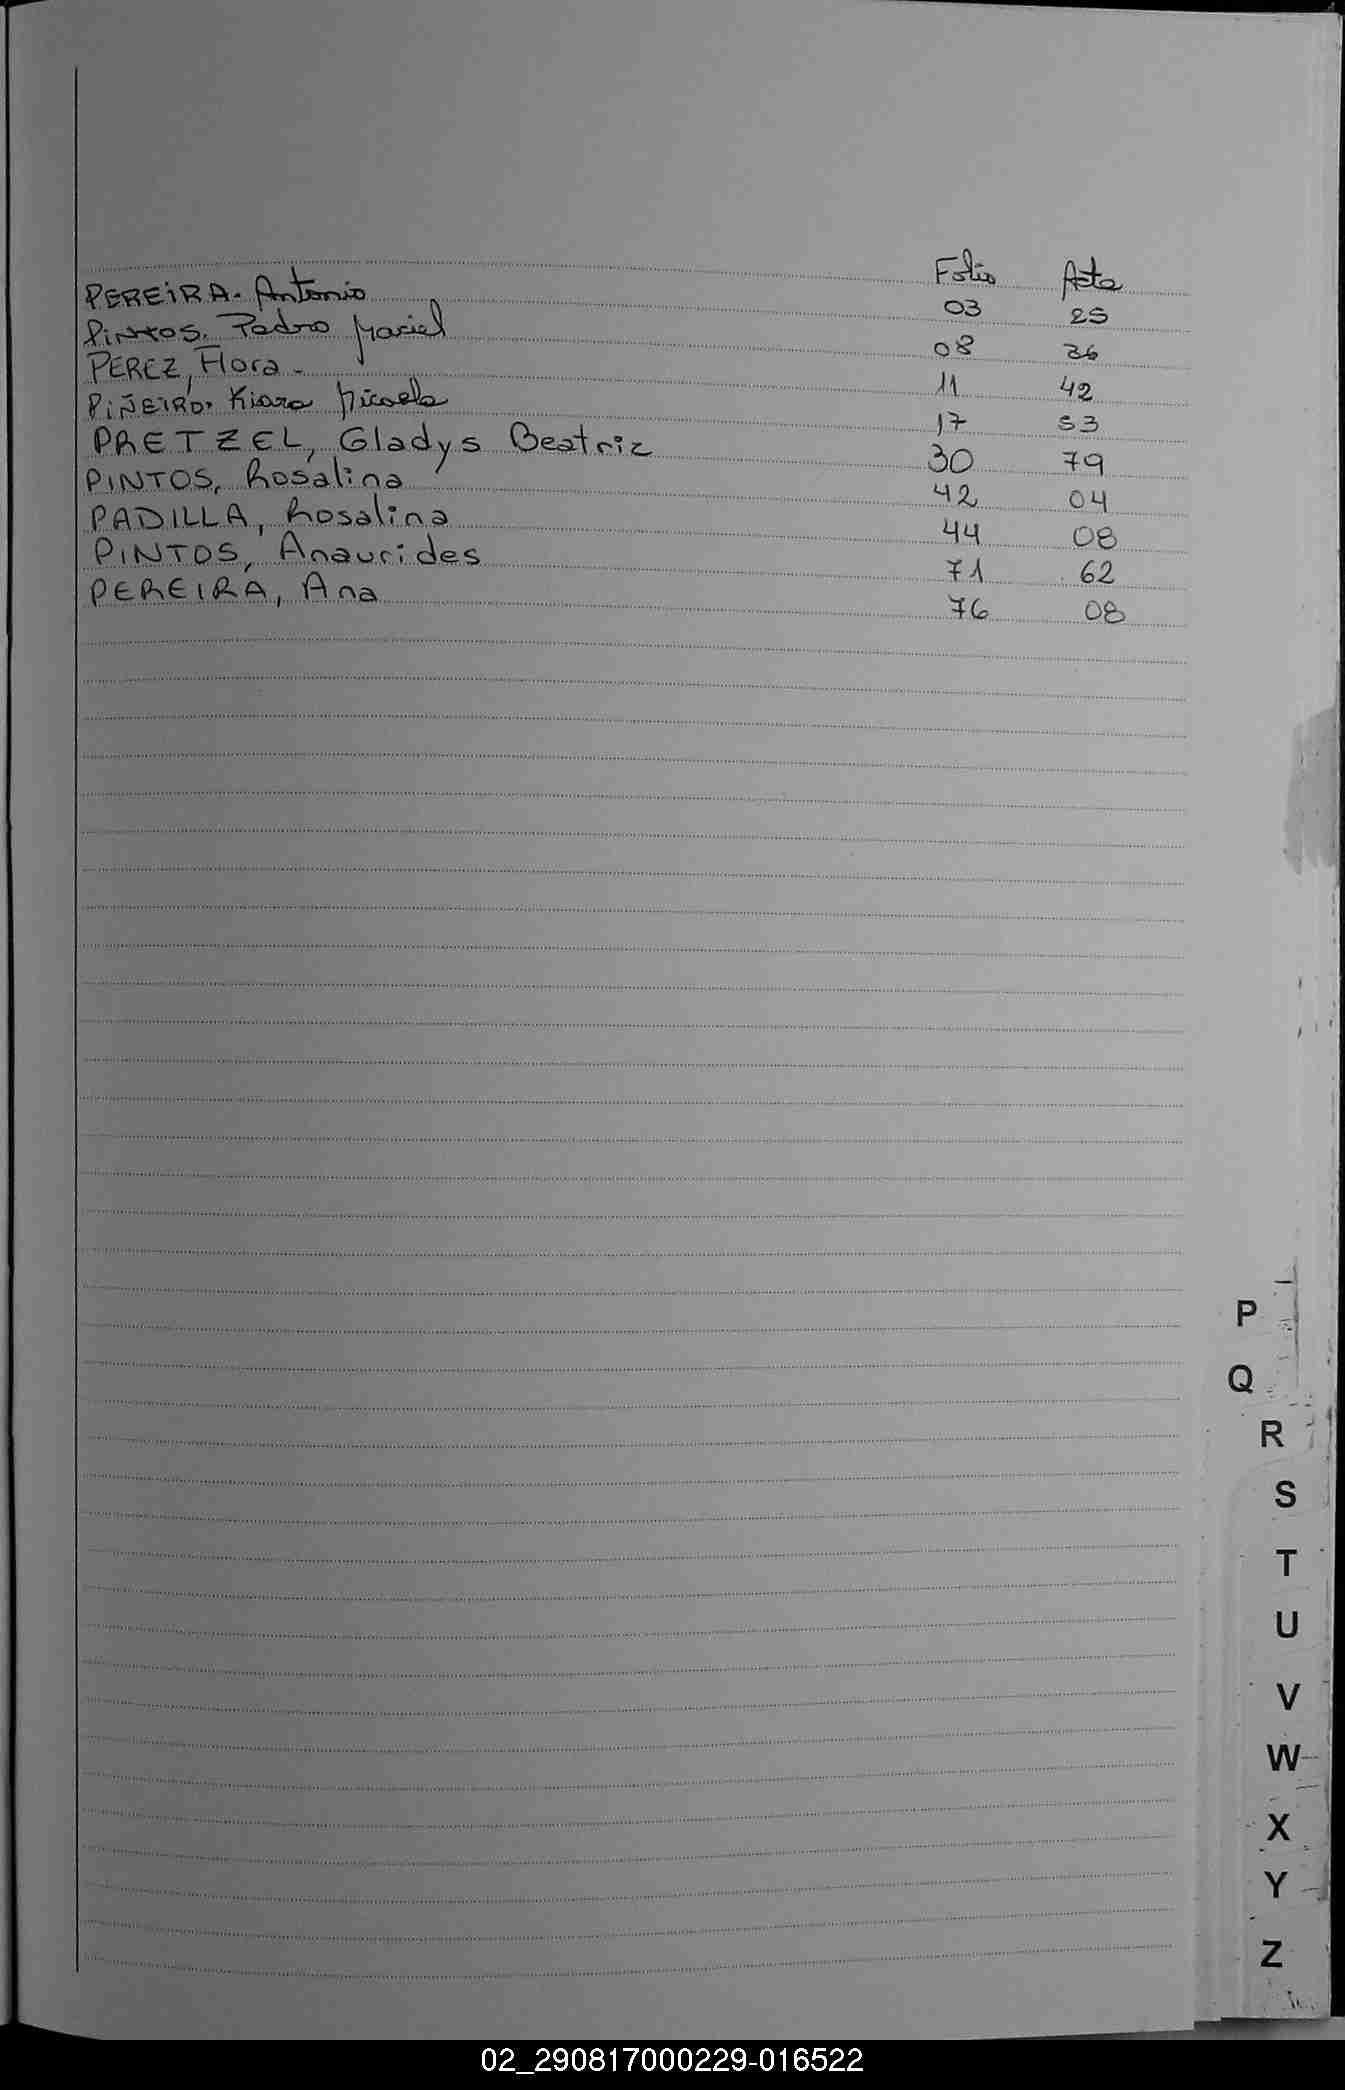 Folio Acta
PEREIRA. Antonio 03 25
Pintos. Pedro Maciel 08 36
PEREZ, Flora - 11 42
PIÑEIRO. Kiara Micaela 17 53
PRETZEL, Gladys Beatriz 30 79
PINTOS, Rosalina 42 04
PADILLA, Rosalina 44 08
PINTOS, Anaurides 71 62
PEREIRA, Ana 76 08
P
Q
R
S
T
U
V
W
X
Y
Z
02_290817000229-016522